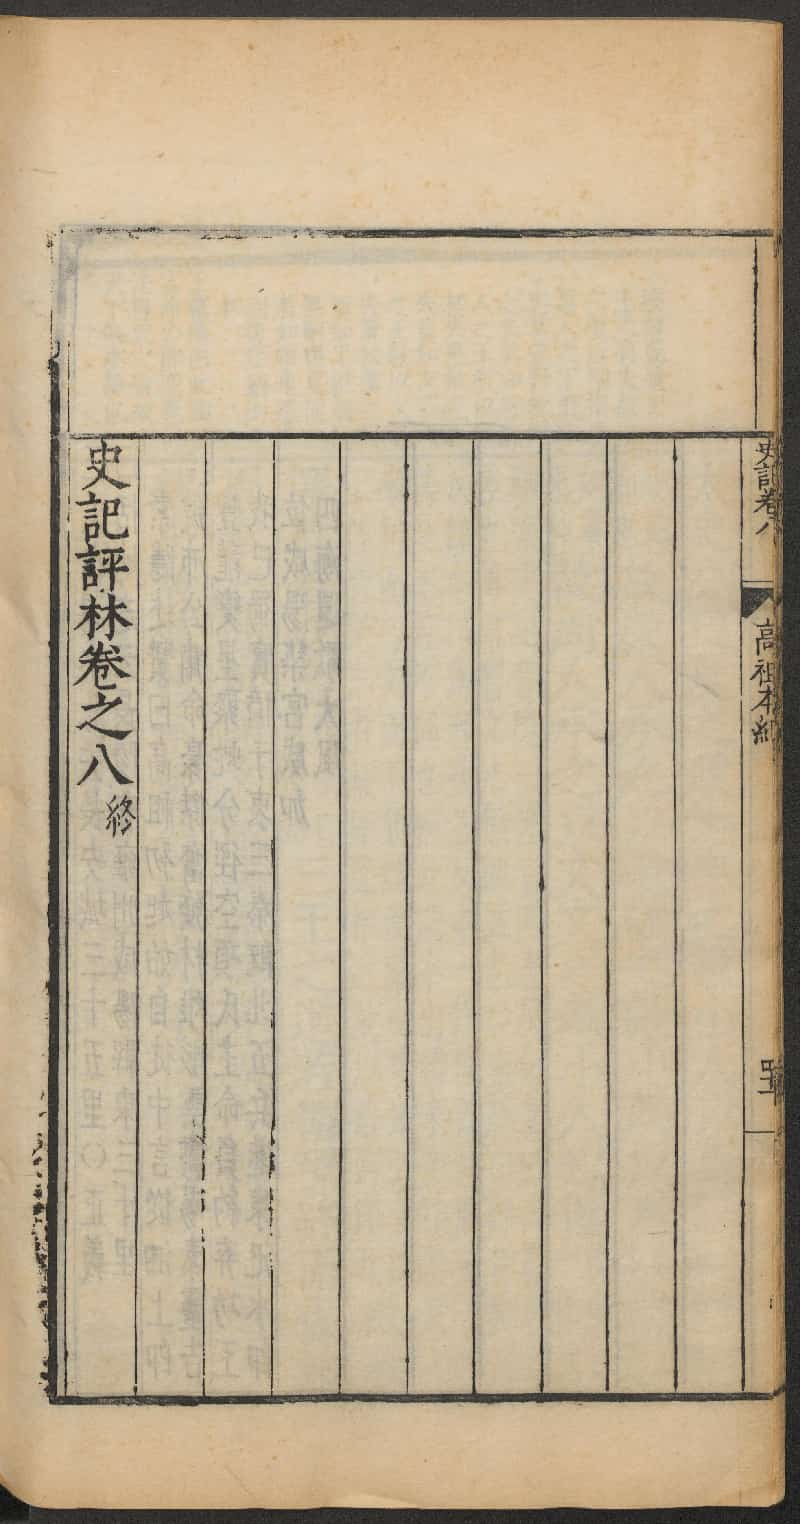 史記卷八
高祖本紀
史記評林卷之八終